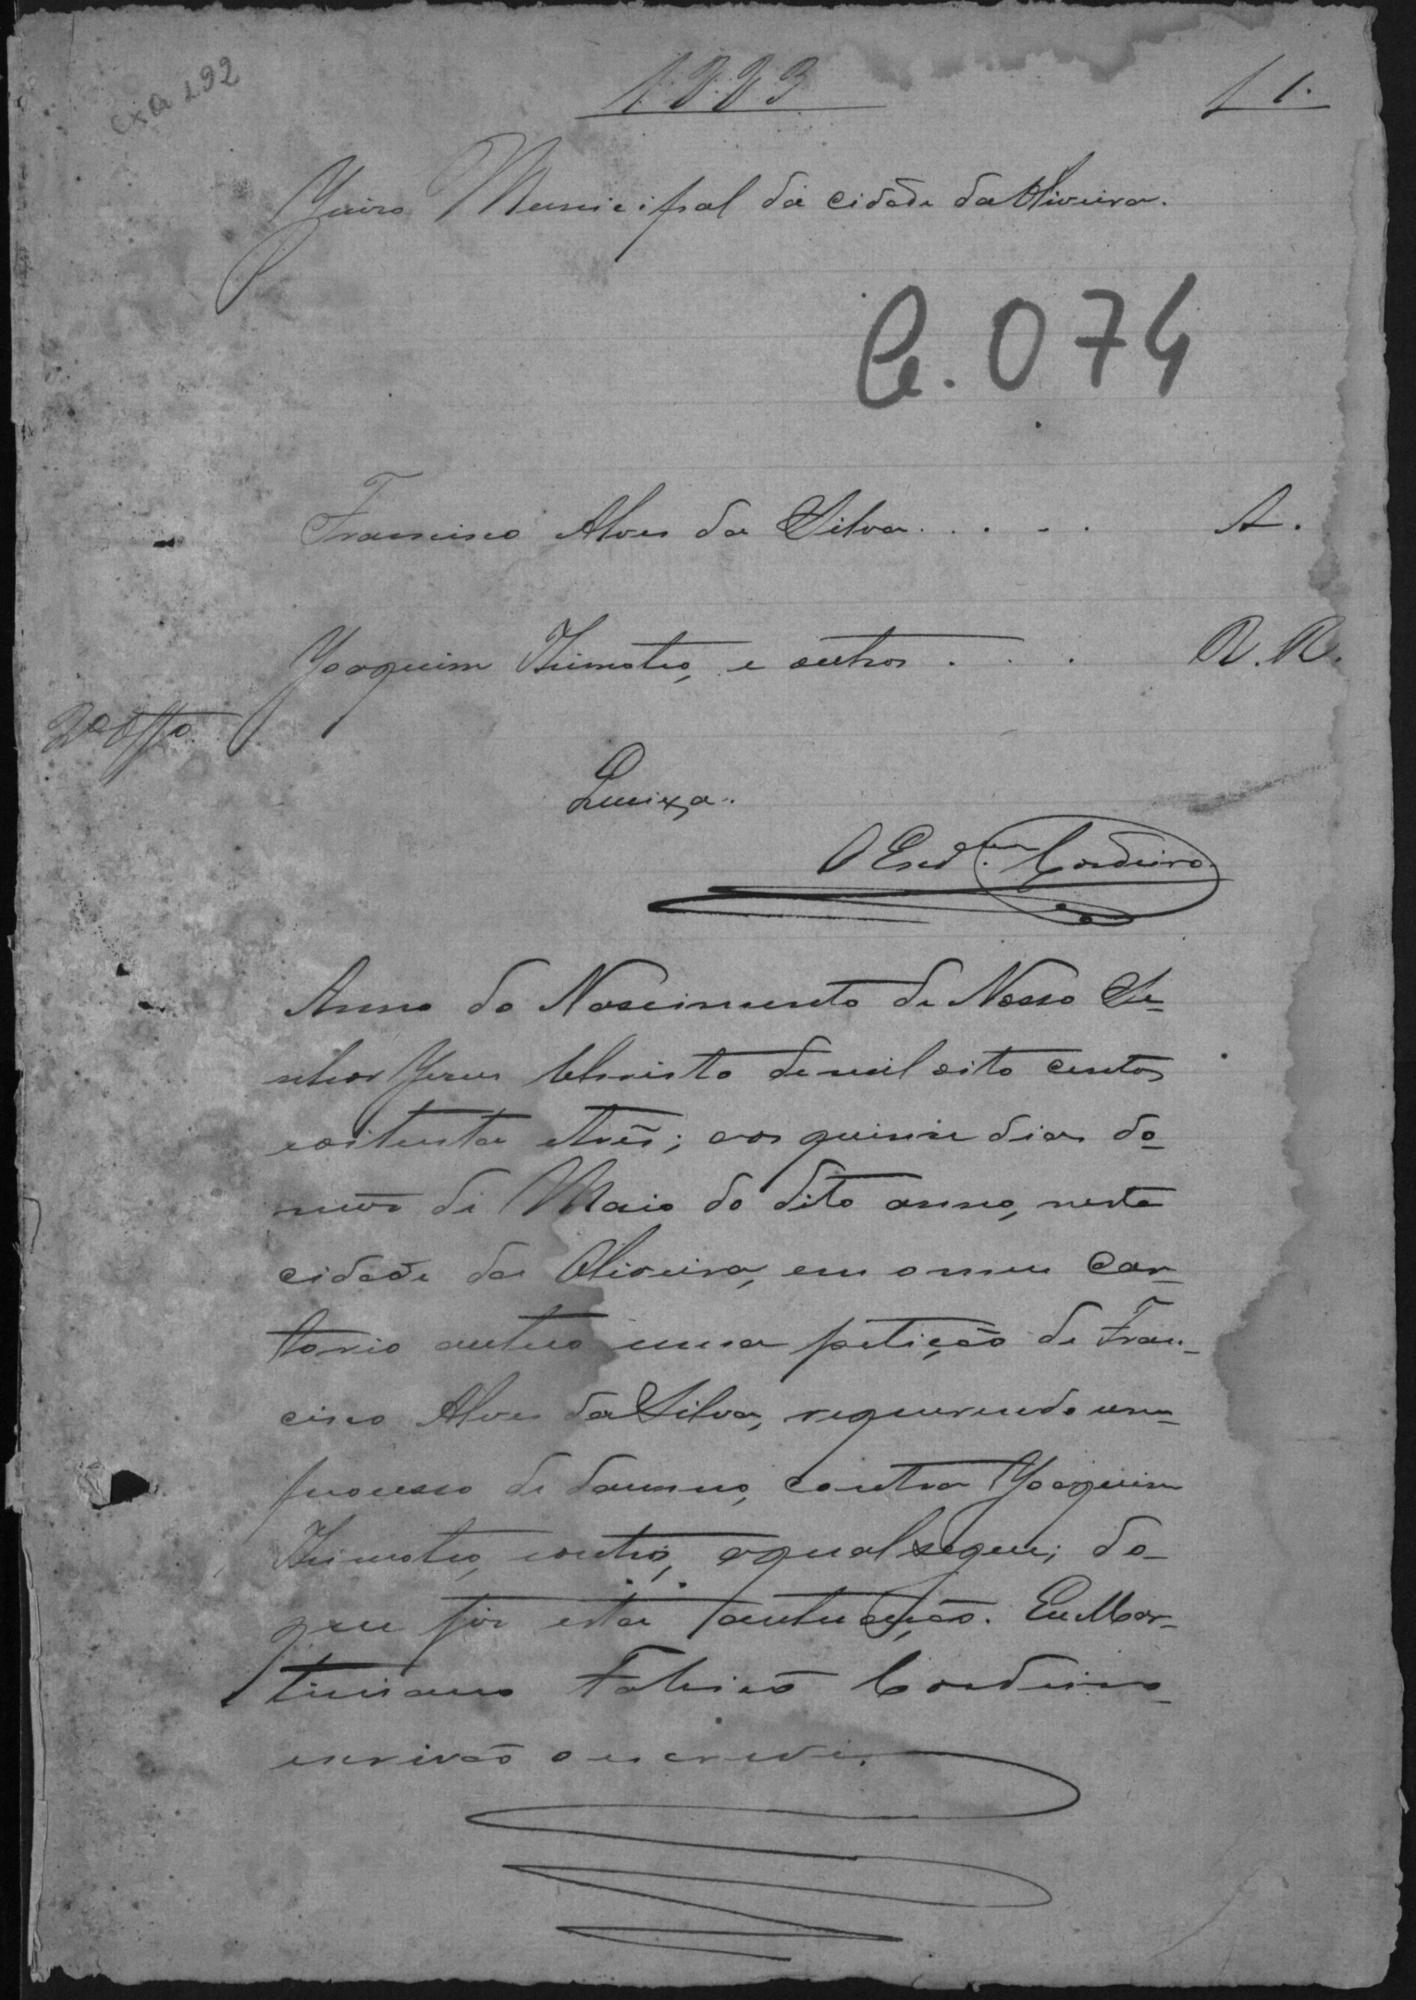 cxa 192
1883
f 1.
Juizo Municipal da cidade da Oliveira.
Cr. 074
Francisco Alves da Silva . . . . . A.
Joaquim Thimoteo, e outros . . . R. R.
2º Offo.
Queixa.
O Escram. Cordeiro
Anno do Nascimento de Nosso Se-
nhor Jesus Christo de mil oito centos
e oitenta e tres; aos quinze dias do
mes de Maio do dito anno, nesta
cidade da Oliveira, em o meu Car-
torio autuo uma petição de Fran-
cisco Alves da Silva, requerendo um
processo de damno, contra Joaquim
Thimoteo, e outros, a qual segue; do
que fiz esta autuação. Eu Mar-
tiniano Fabiaõ Cordeiro
escrivaõ o escrevi.